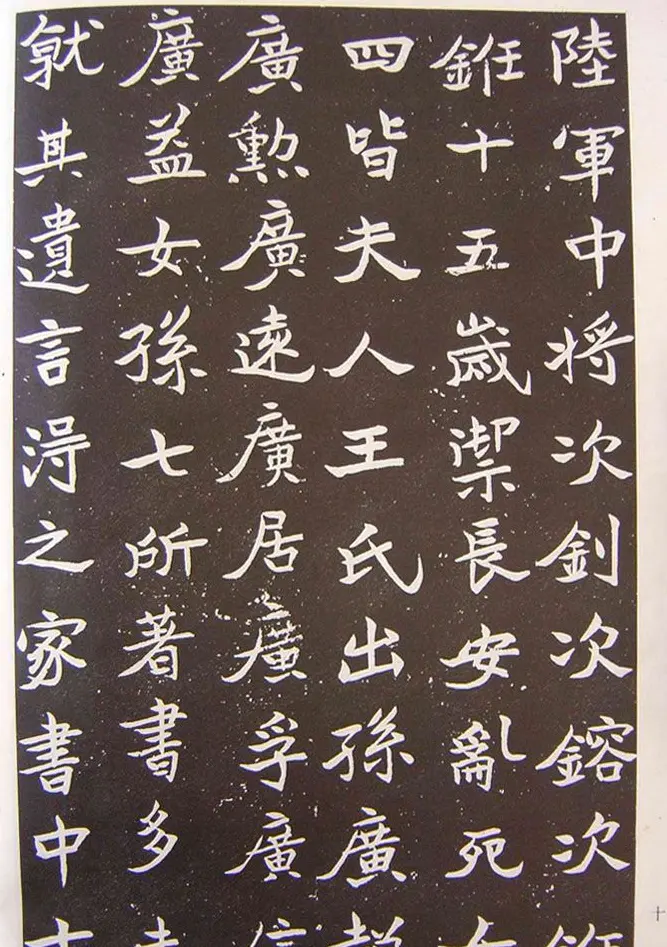 陸軍中将次釗次鎔次
銋十五歳禦長安亂死
四皆夫人王氏出孫廣
廣勳廣遠廣居廣孚廣
廣益女孫七所著書多
就其遺言淂之家書中十
十